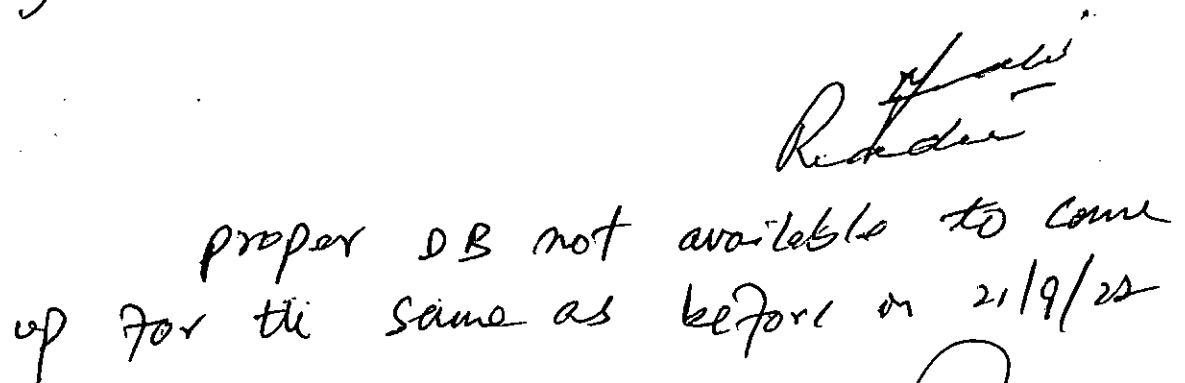 Reader
proper DB not available to come
up for the same as before on 21/9/22